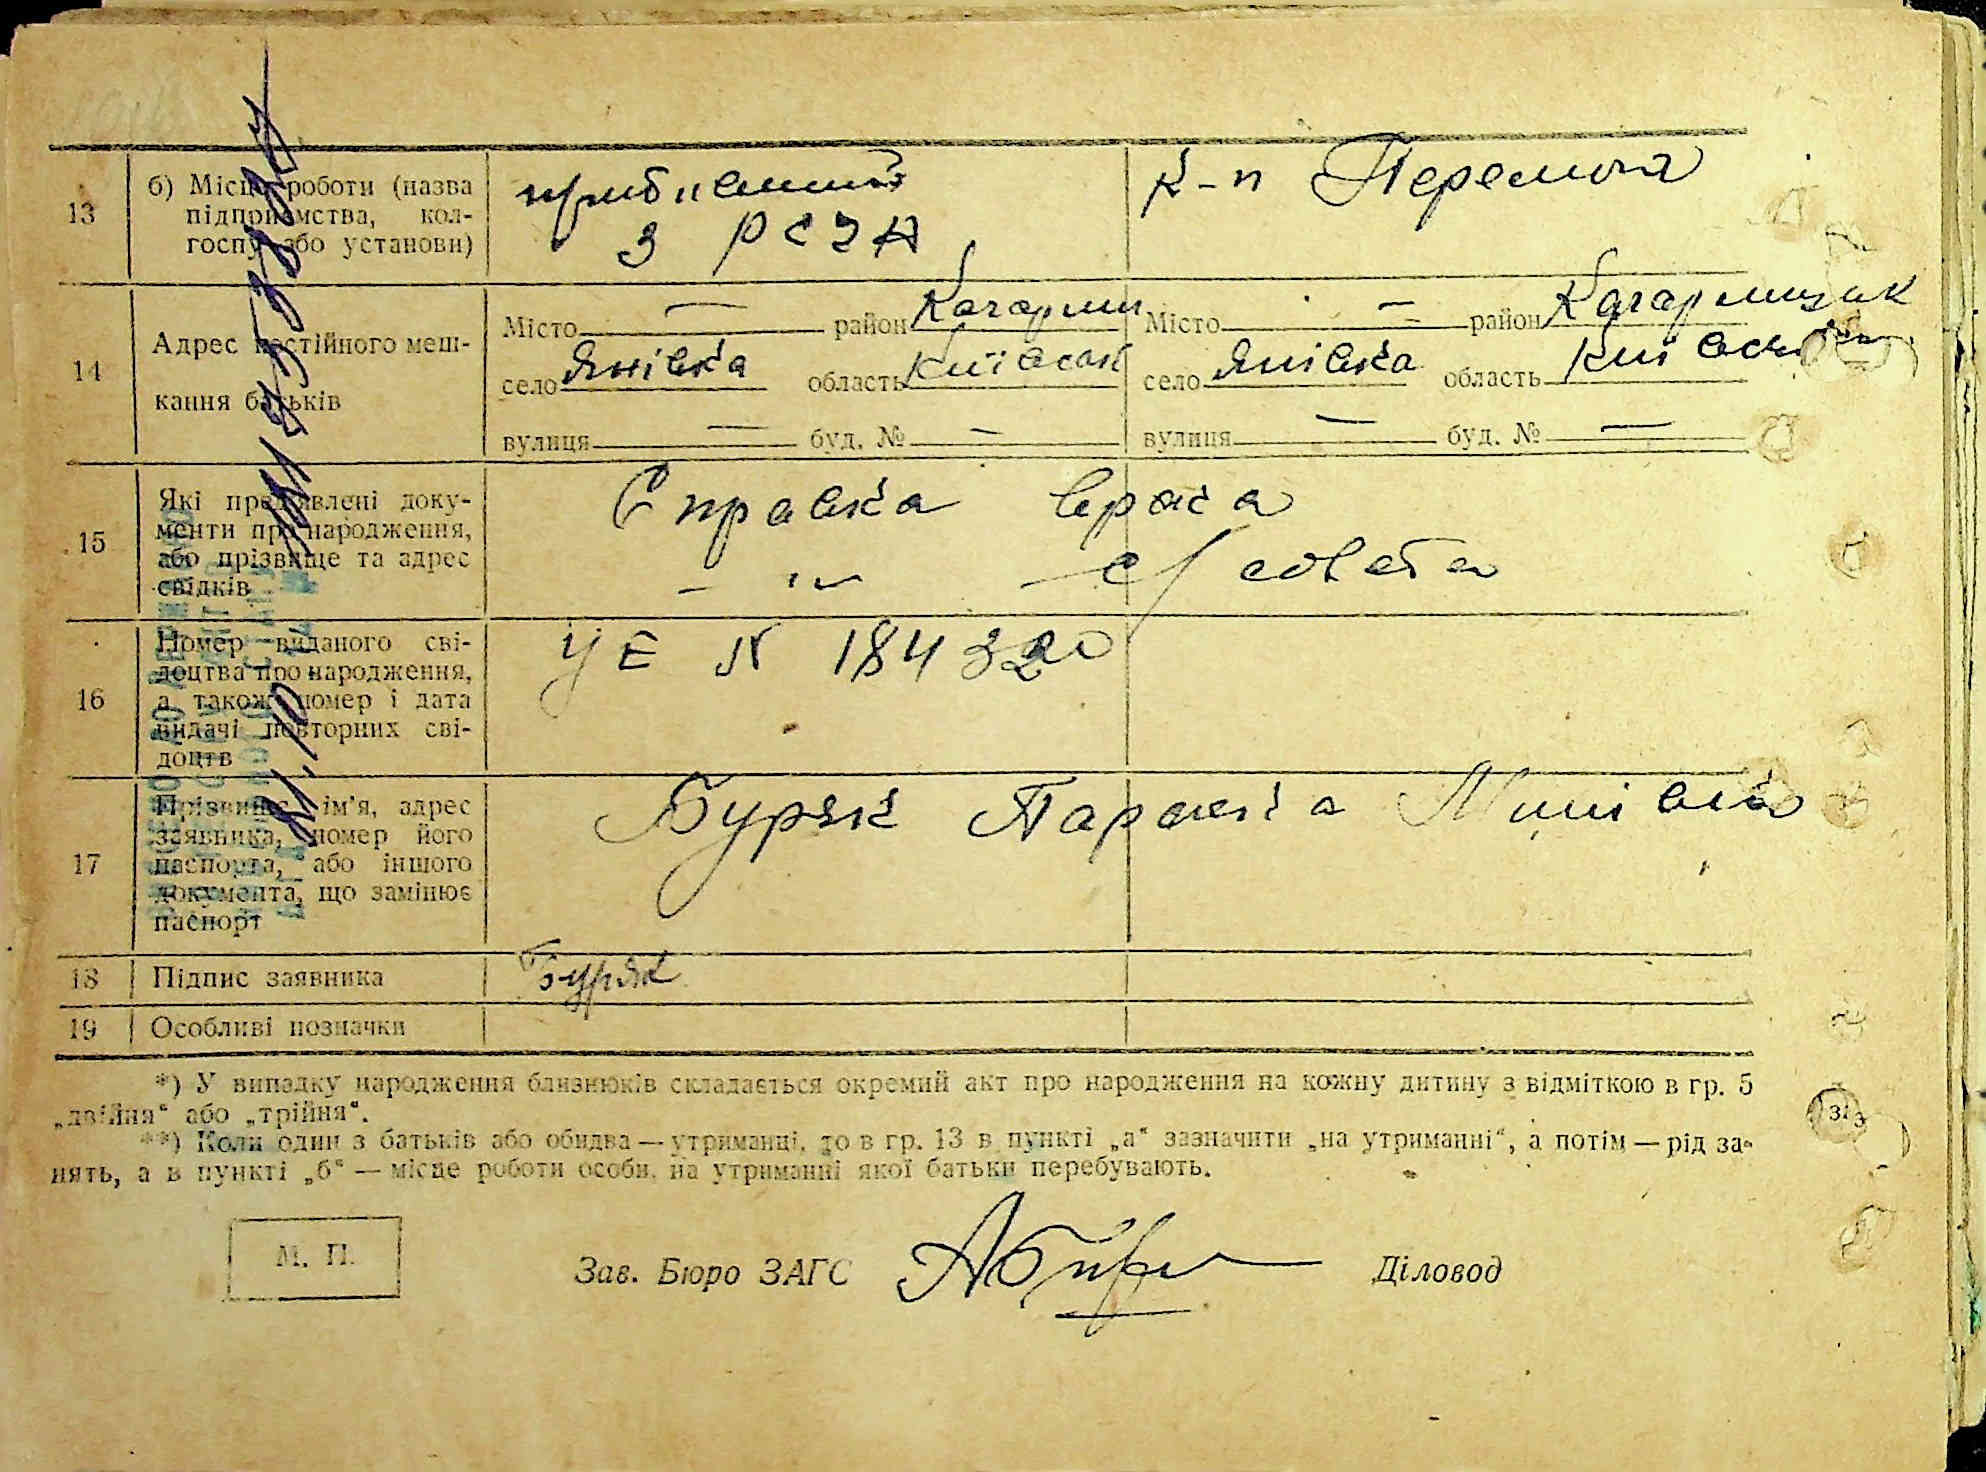 13 б) Місце роботи (назва підприємства, колгоспу або установи)
прибивший з РСЧА
к-п Перемога
14 Адрес постійного мешкання батьків
Місто — район Кагарлиц
село Янівка область Київськ
вулиця — буд. № —
Місто — район Кагарлицьк
село Янівка область Київськ
вулиця — буд. № —
15 Які пред'явлені документи про народження, або прізвище та адрес свідків
Справка врача
— " — с/совета
16 Номер виданого свідоцтва про народження, а також номер і дата видачі повторних свідоцтв
УЕ N 184320
17 Прізвище, ім'я, адрес заявника, номер його паспорта, або іншого документа, що замінює паспорт
Буряк Параска
18 Підпис заявника
Буряк
19 Особливі позначки
*) У випадку народження близнюків складається окремий акт про народження на кожну дитину з відміткою в гр. 5
„двійня“ або „трійня“.
**) Коли один з батьків або обидва — утриманці, то в гр. 13 в пункті „а“ зазначити „на утриманні“, а потім — рід за-
нять, а в пункті „б“ — місце роботи особи, на утриманні якої батьки перебувають.
М. П.
Зав. Бюро ЗАГС
Діловод